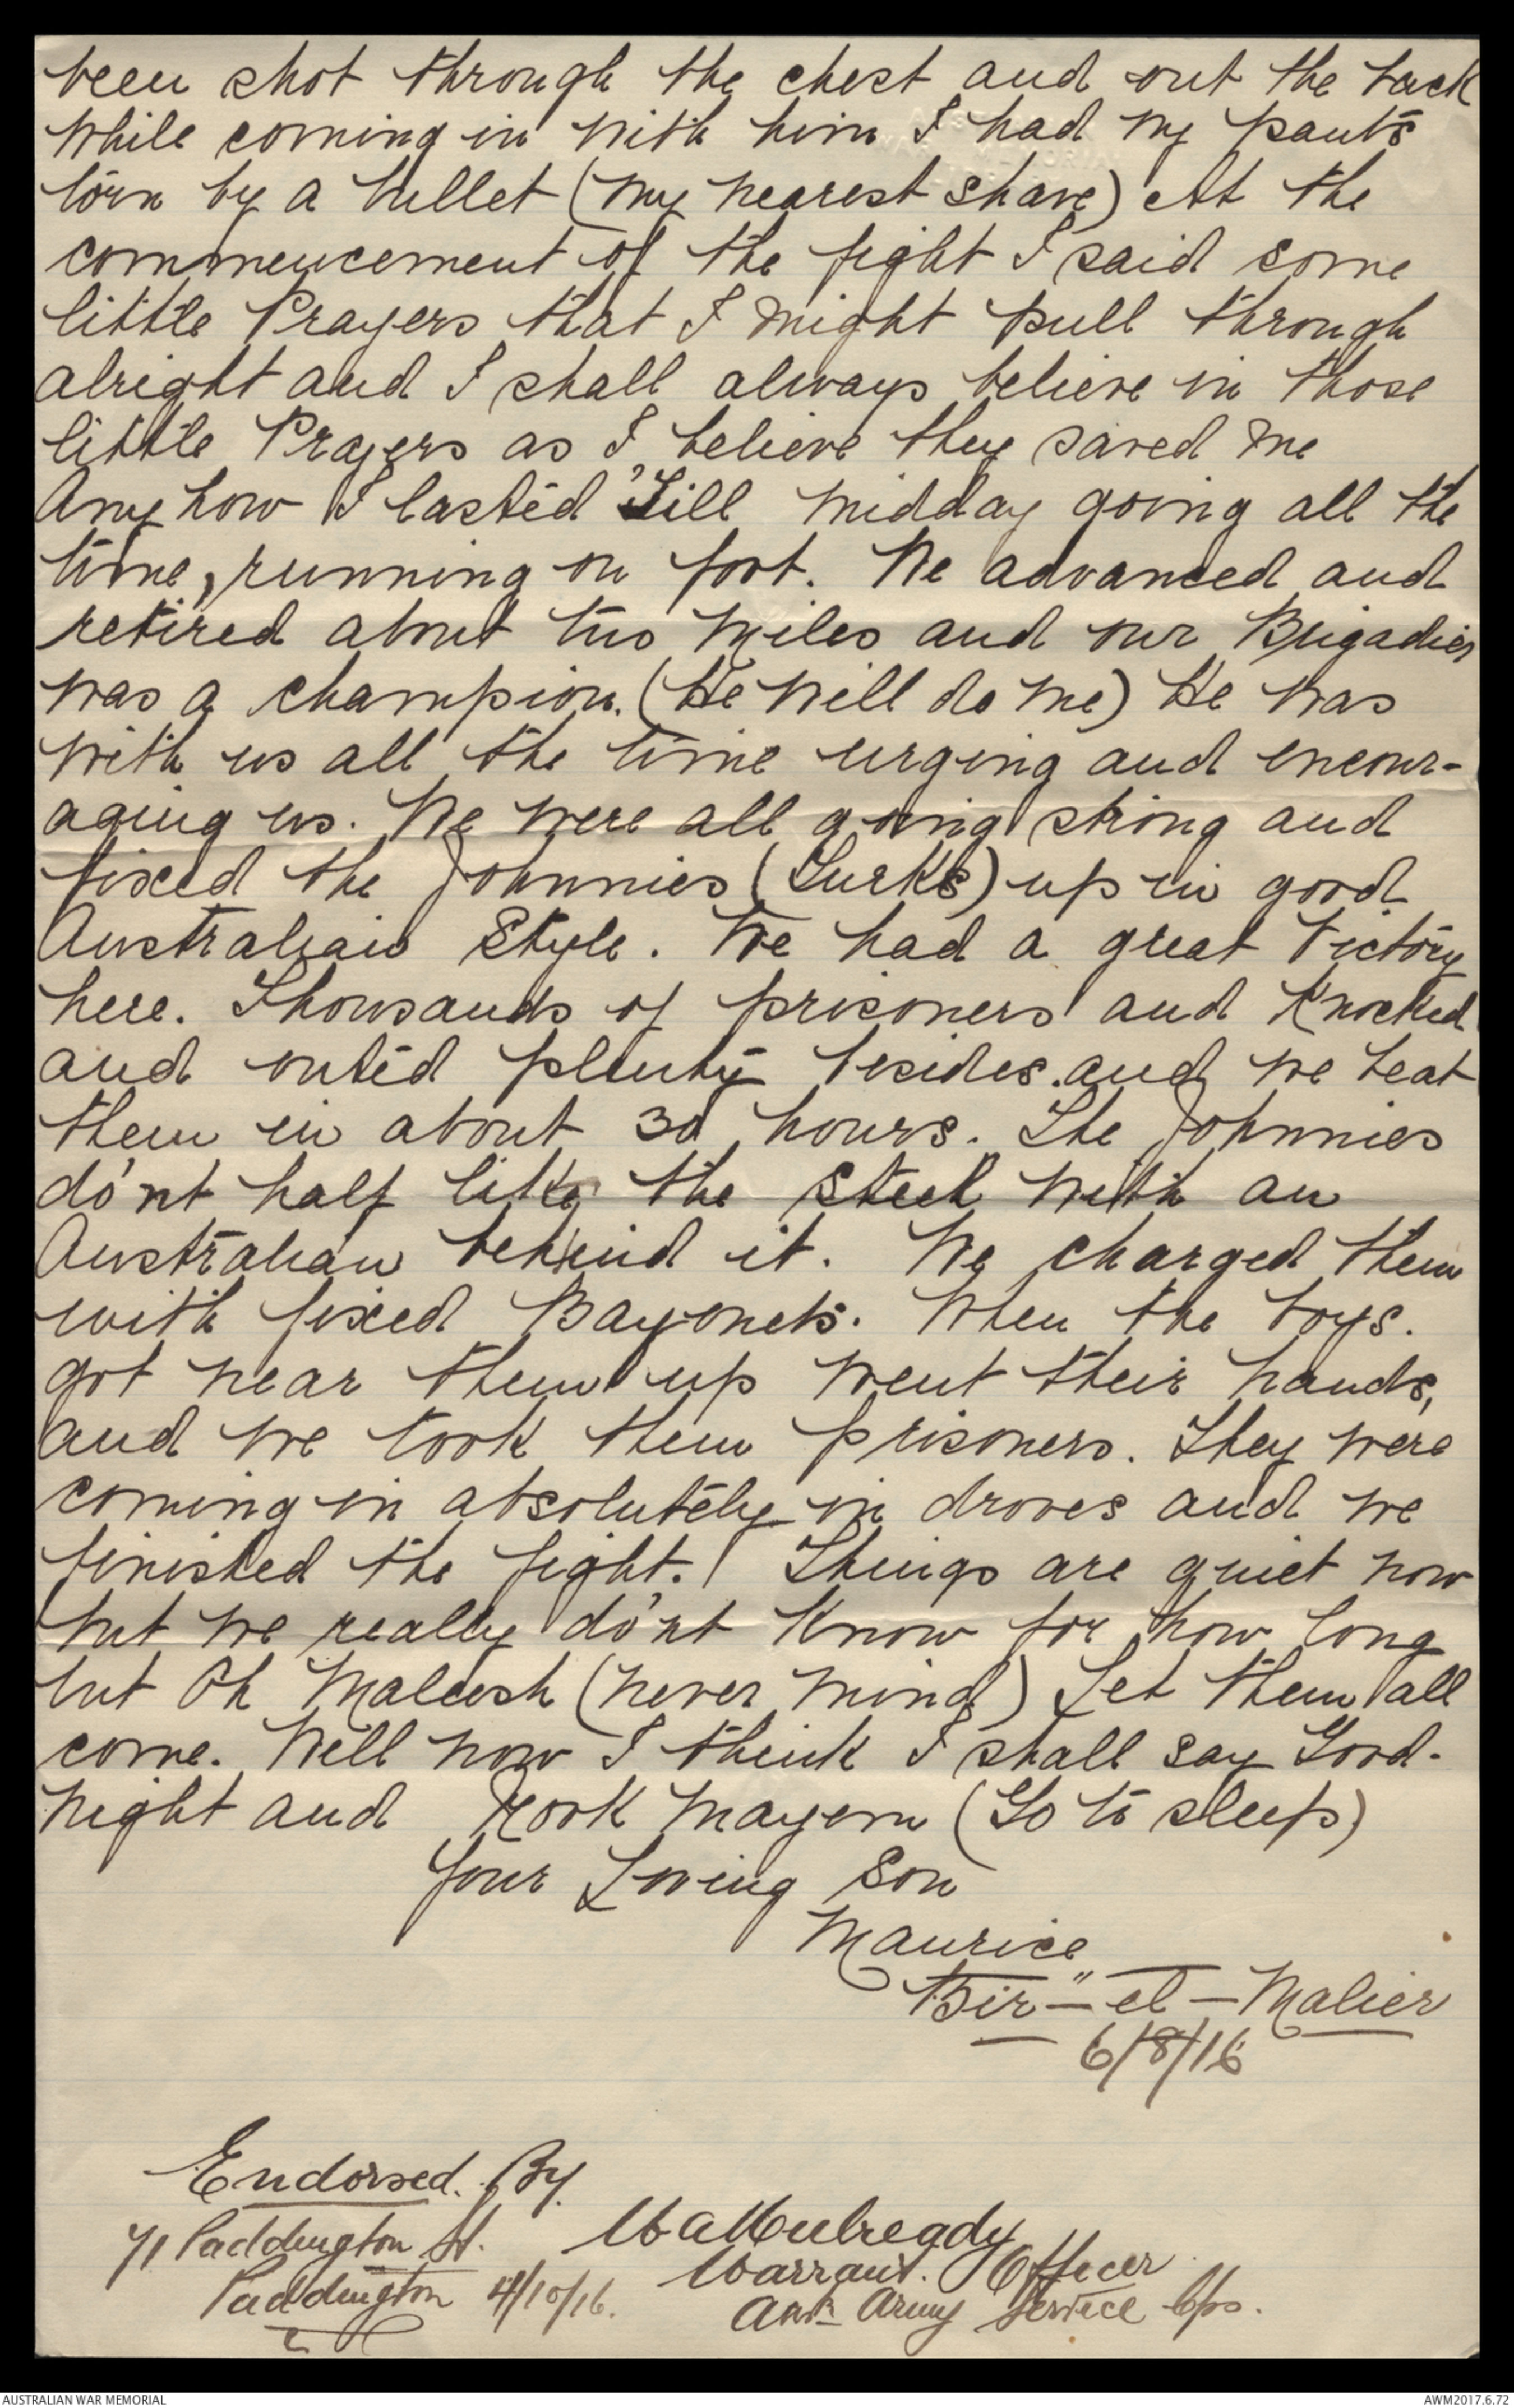 been shot through the chest and out the back
While coming in with him I had my pants
torn by a bullet (my nearest shave) At the
commencement of the fight I said some
little Prayers that I might pull through
alright and I shall always believe in those
little Prayers as I believe they saved me
Anyhow I lasted 'Till midday going all the
time, running on foot. We advanced and
retired about two miles and our Brigadier
was a champion. (He will do me) He was
with us all the time urging and encour-
aging us. We were all going strong and
fixed the Johnnies (Turks) up in good
Australian Style. We had a great Victory
here. Thousands of prisoners and Knocked
and outed plenty besides. and we beat
them in about 30 hours. The Johnnies
do'nt half like the steel with an
Australian behind it. We charged them
with fixed Bayonets. When the boys.
got near them up went their hands,
and we took them prisoners. They were
coming in absolutely in droves and we
finished the fight. Things are quiet now
but we really do'nt Know for how long
but Oh Maleesh (never mind) Let them all
come. Well now I think I shall say Good-
night and Rook Mayem (Go to sleep)
Your Loving Son
Maurice
Bir - el - Malier
6/8/16
Endorsed. By.
W A Mulready
71 Paddington St. Warrant. Officer
Paddington 4/10/16. Aus. Army Service Cps.
AUSTRALIAN WAR MEMORIAL AWM2017.6.72